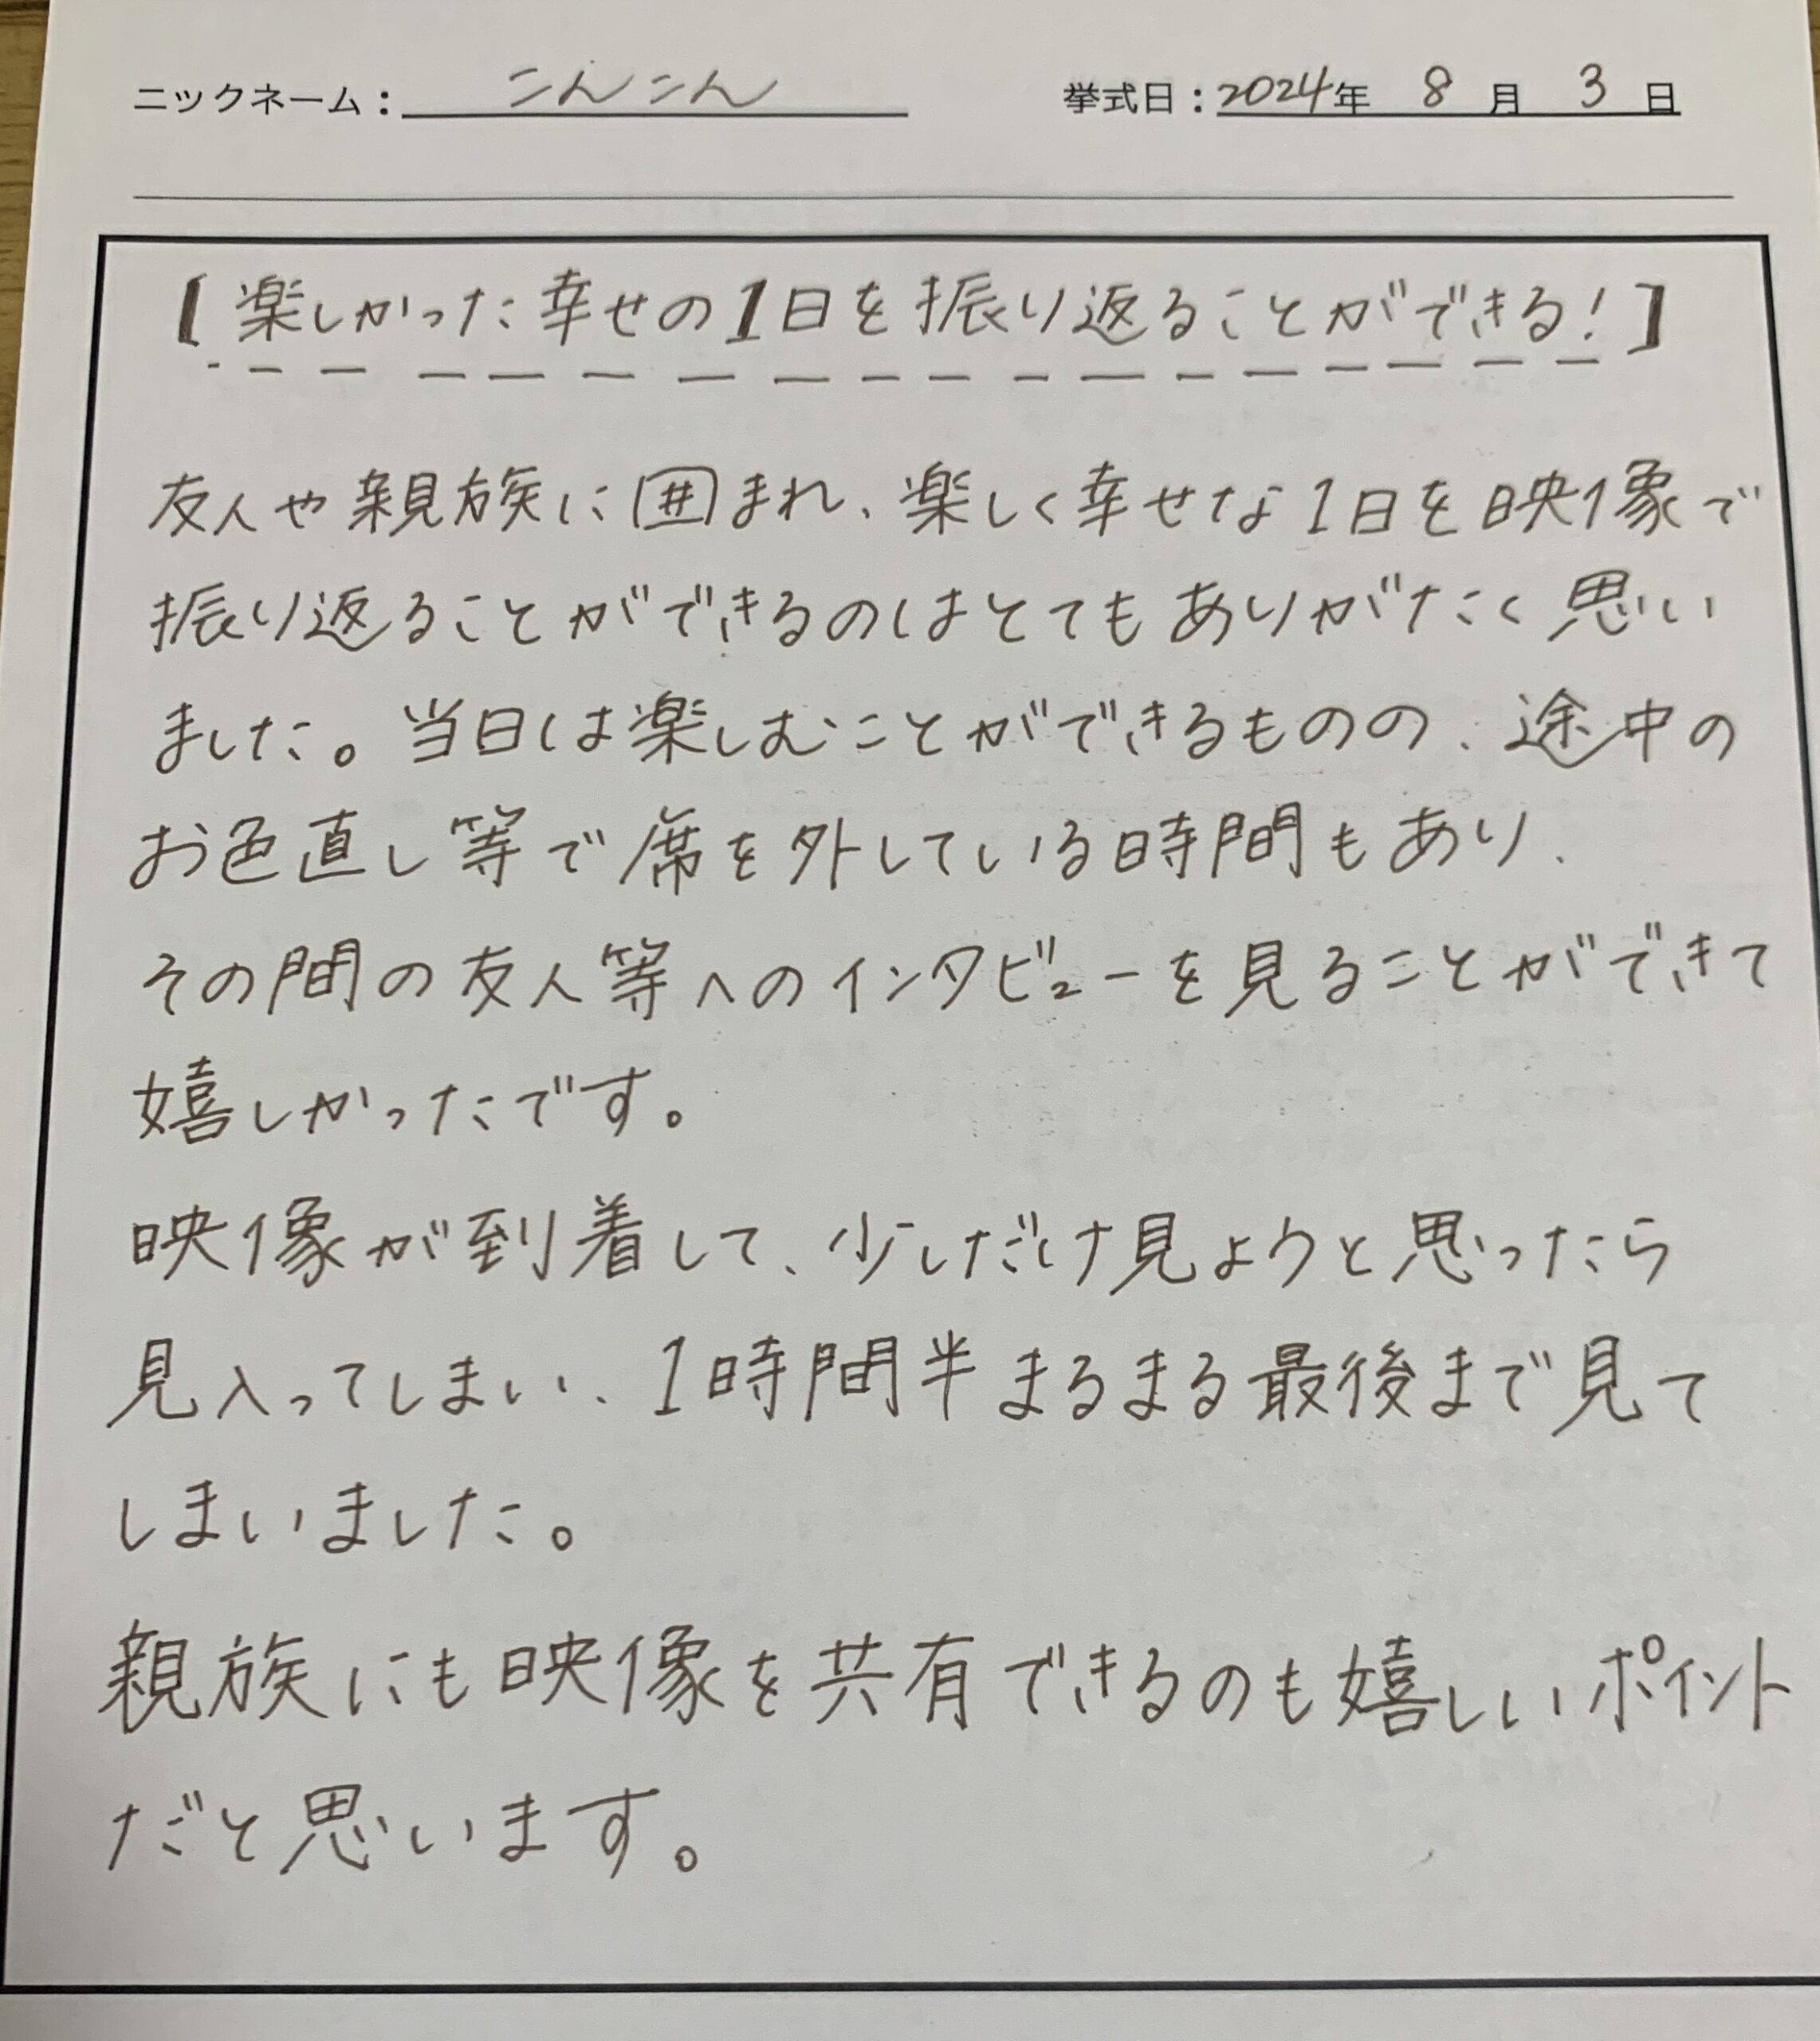 ニックネーム：こんこん 挙式日：2024年 8月 3日
【楽しかった幸せの1日を振り返ることができる！】
友人や親族に囲まれ、楽しく幸せな1日を映像で
振り返ることができるのはとてもありがたく思い
ました。当日は楽しむことができるものの、途中の
お色直し等で席を外している時間もあり、
その間の友人等へのインタビューを見ることができて
嬉しかったです。
映像が到着して、少しだけ見ようと思ったら
見入ってしまい、1時間半まるまる最後まで見て
しまいました。
親族にも映像を共有できるのも嬉しいポイント
だと思います。